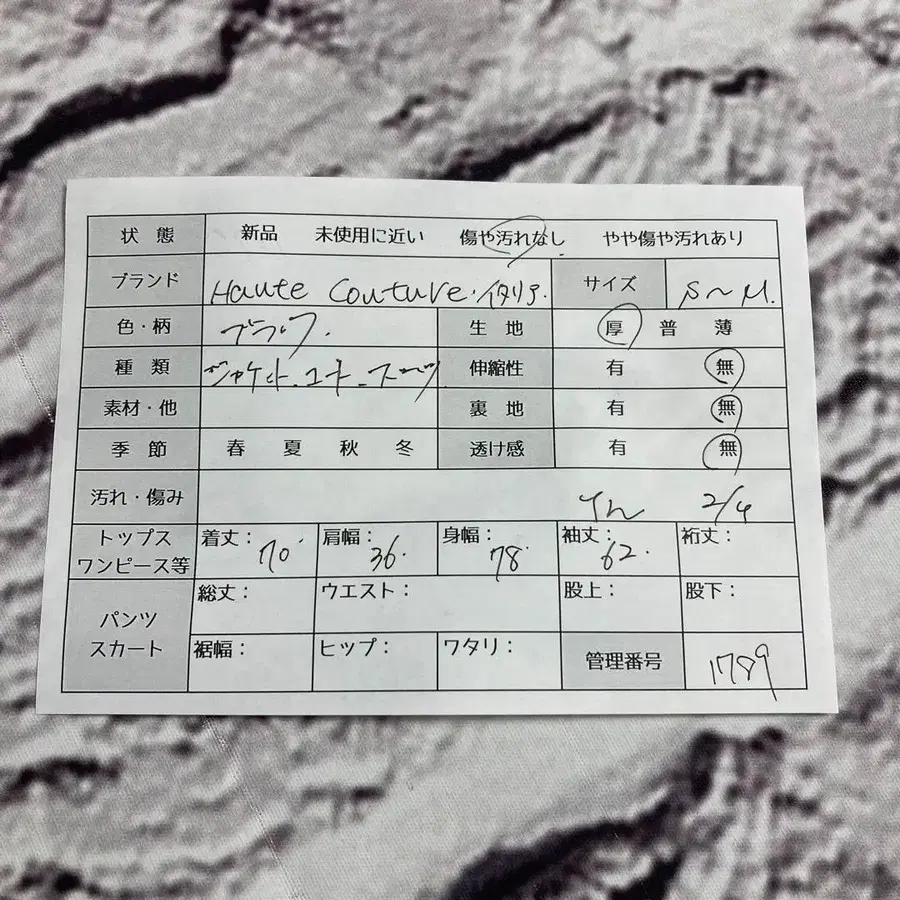 状態 新品 未使用に近い 傷や汚れなし やや傷や汚れあり
ブランド Haute Couture・イタリア. サイズ S～M.
色・柄 ブラック. 生地 厚 普 薄
種類 ジャケット. コート. スーツ 伸縮性 有 無
素材・他 裏地 有 無
季節 春 夏 秋 冬 透け感 有 無
汚れ・傷み 2/4
トップス ワンピース等 着丈：70. 肩幅：36. 身幅：78 袖丈：62. 裄丈：
パンツ スカート 総丈： ウエスト： 股上： 股下：
裾幅： ヒップ： ワタリ： 管理番号 1789